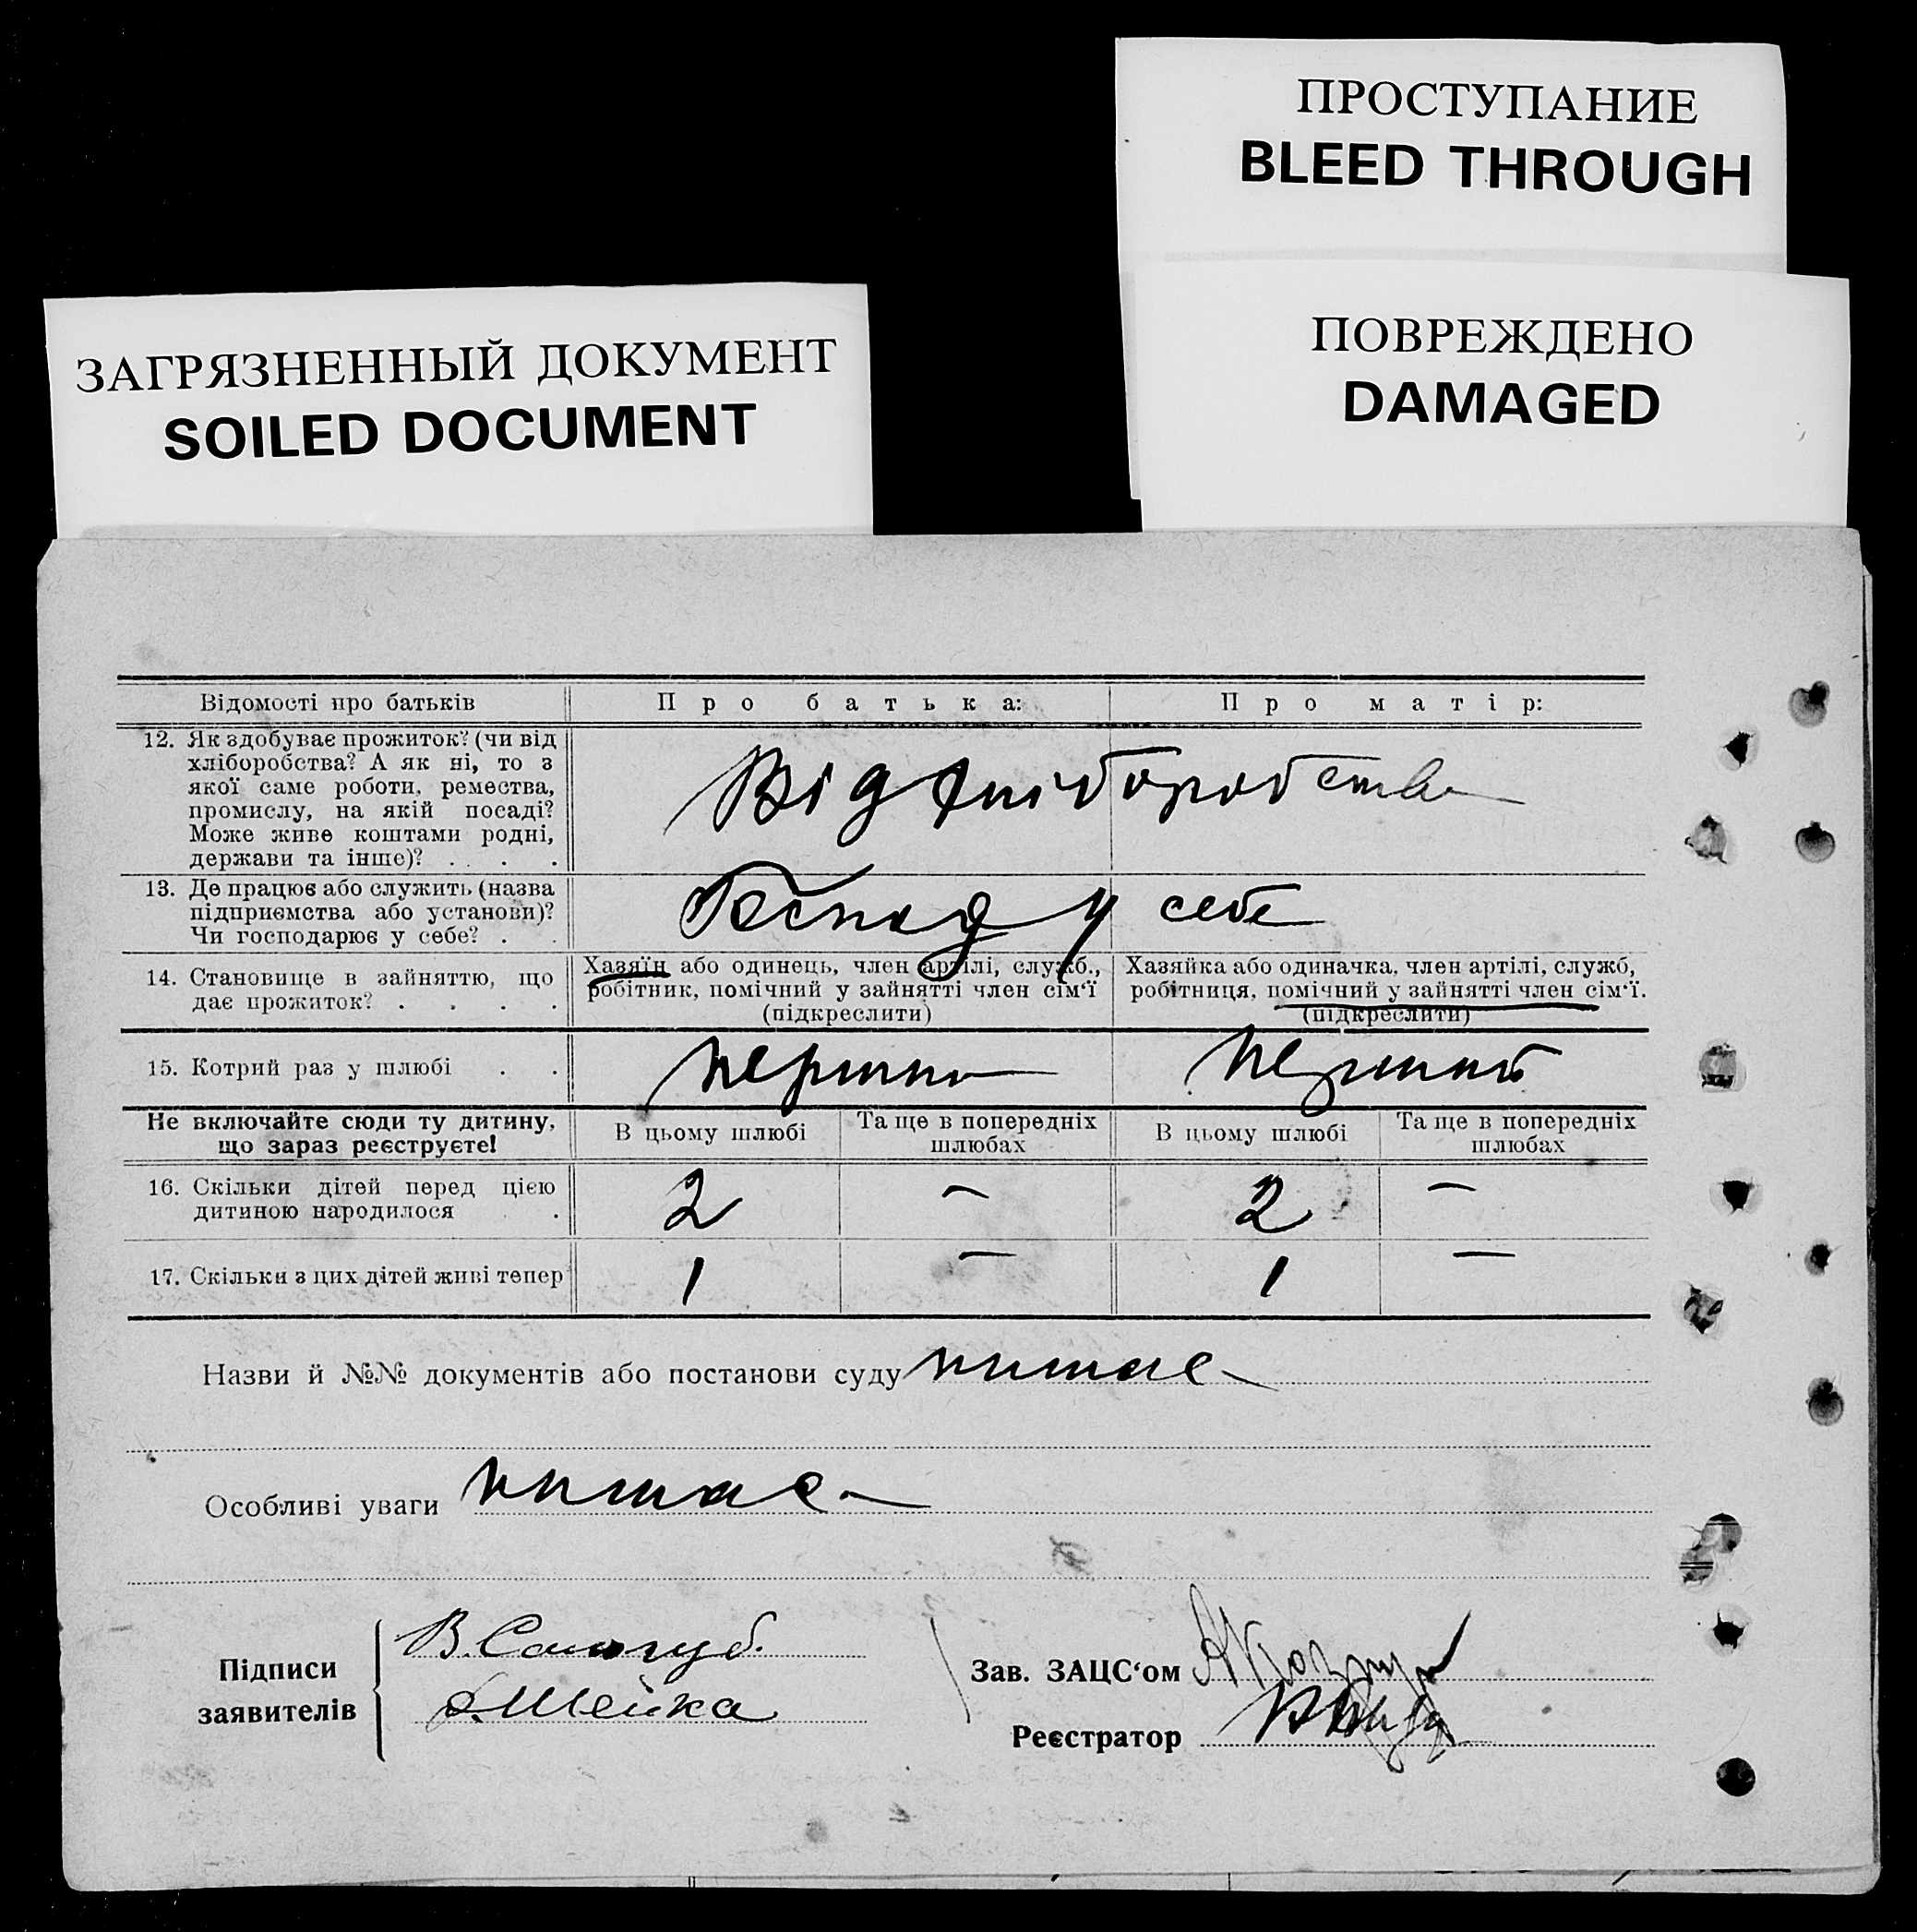 ПРОСТУПАНИЕ
BLEED THROUGH
ПОВРЕЖДЕНО
DAMAGED
ЗАГРЯЗНЕННЫЙ ДОКУМЕНТ
SOILED DOCUMENT
Відомості про батьків
Про батька:
Про матір:
12. Як здобуває прожиток? (чи від
хліборобства? А як ні, то з
якої саме роботи, ремества,
промислу, на якій посаді?
Може живе коштами родні,
держави та інше)? . . . .
Від хліборобства
13. Де працює або служить (назва
підприємства або установи)?
Чи господарює у себе? . .
Господ у себе
14. Становище в зайняттю, що
дає прожиток? . . . .
Хазяїн або одинець, член артілі, служб.,
робітник, помічний у зайнятті член сім'ї
(підкреслити)
Хазяйка або одиначка, член артілі, служб,
робітниця, помічний у зайнятті член сім'ї.
(підкреслити)
15. Котрий раз у шлюбі . .
перший
Не включайте сюди ту дитину,
що зараз реєструєте!
В цьому шлюбі
Та ще в попередніх
шлюбах
В цьому шлюбі
Та ще в попередніх
шлюбах
16. Скільки дітей перед цією
дитиною народилося .
2 — 2 —
17. Скільки з цих дітей живі тепер
1 — 1 —
Назви й №№ документів або постанови суду немає
Особливі уваги немає
Підписи
заявителів
В. Сологуб.
Шейка
Зав. ЗАЦС'ом
Реєстратор